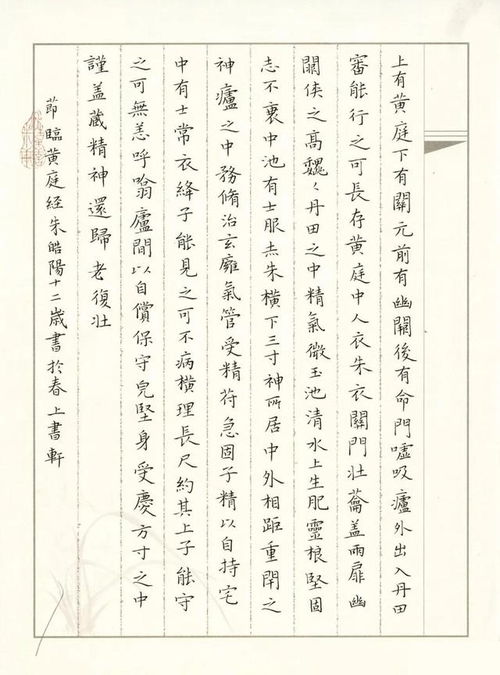 上有黄庭下有關元前有幽闕後有命門噓吸廬外出入丹田
審能行之可長存黄庭中人衣朱衣關門壯蘥盖兩扉幽
闕俠之高魏々丹田之中精氣微玉池清水上生肥靈根堅固
志不衰中池有士服赤朱橫下三寸神所居中外相距重閉之
神廬之中務脩治玄廱氣管受精苻急固子精以自持宅
中有士常衣絳子能見之可不病橫理長尺約其上子能守
之可無恙呼噏廬間以自償保守皃堅身受慶方寸之中
謹盖蔵精神還歸老復壮
節臨黄庭経朱皓陽十二歳書於春上書軒